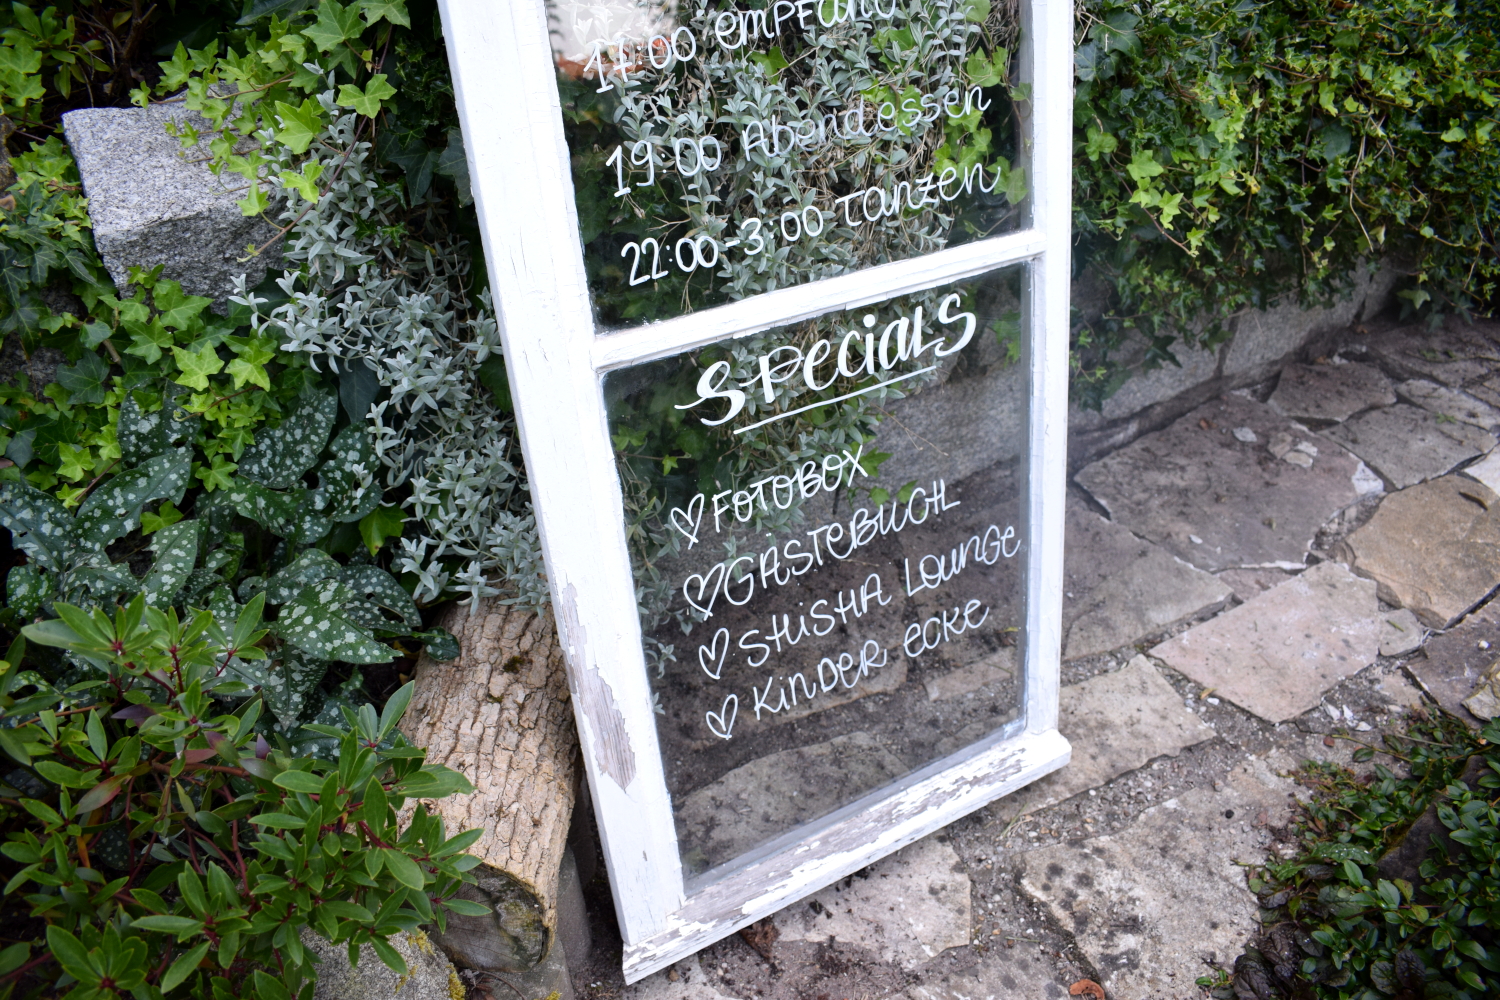 17:00 empfang
19:00 Abendessen
22:00-3:00 Tanzen
Specials
FOTOBOX
GÄSTEBUCH
SHISHA LOUNGE
KINDER ECKE